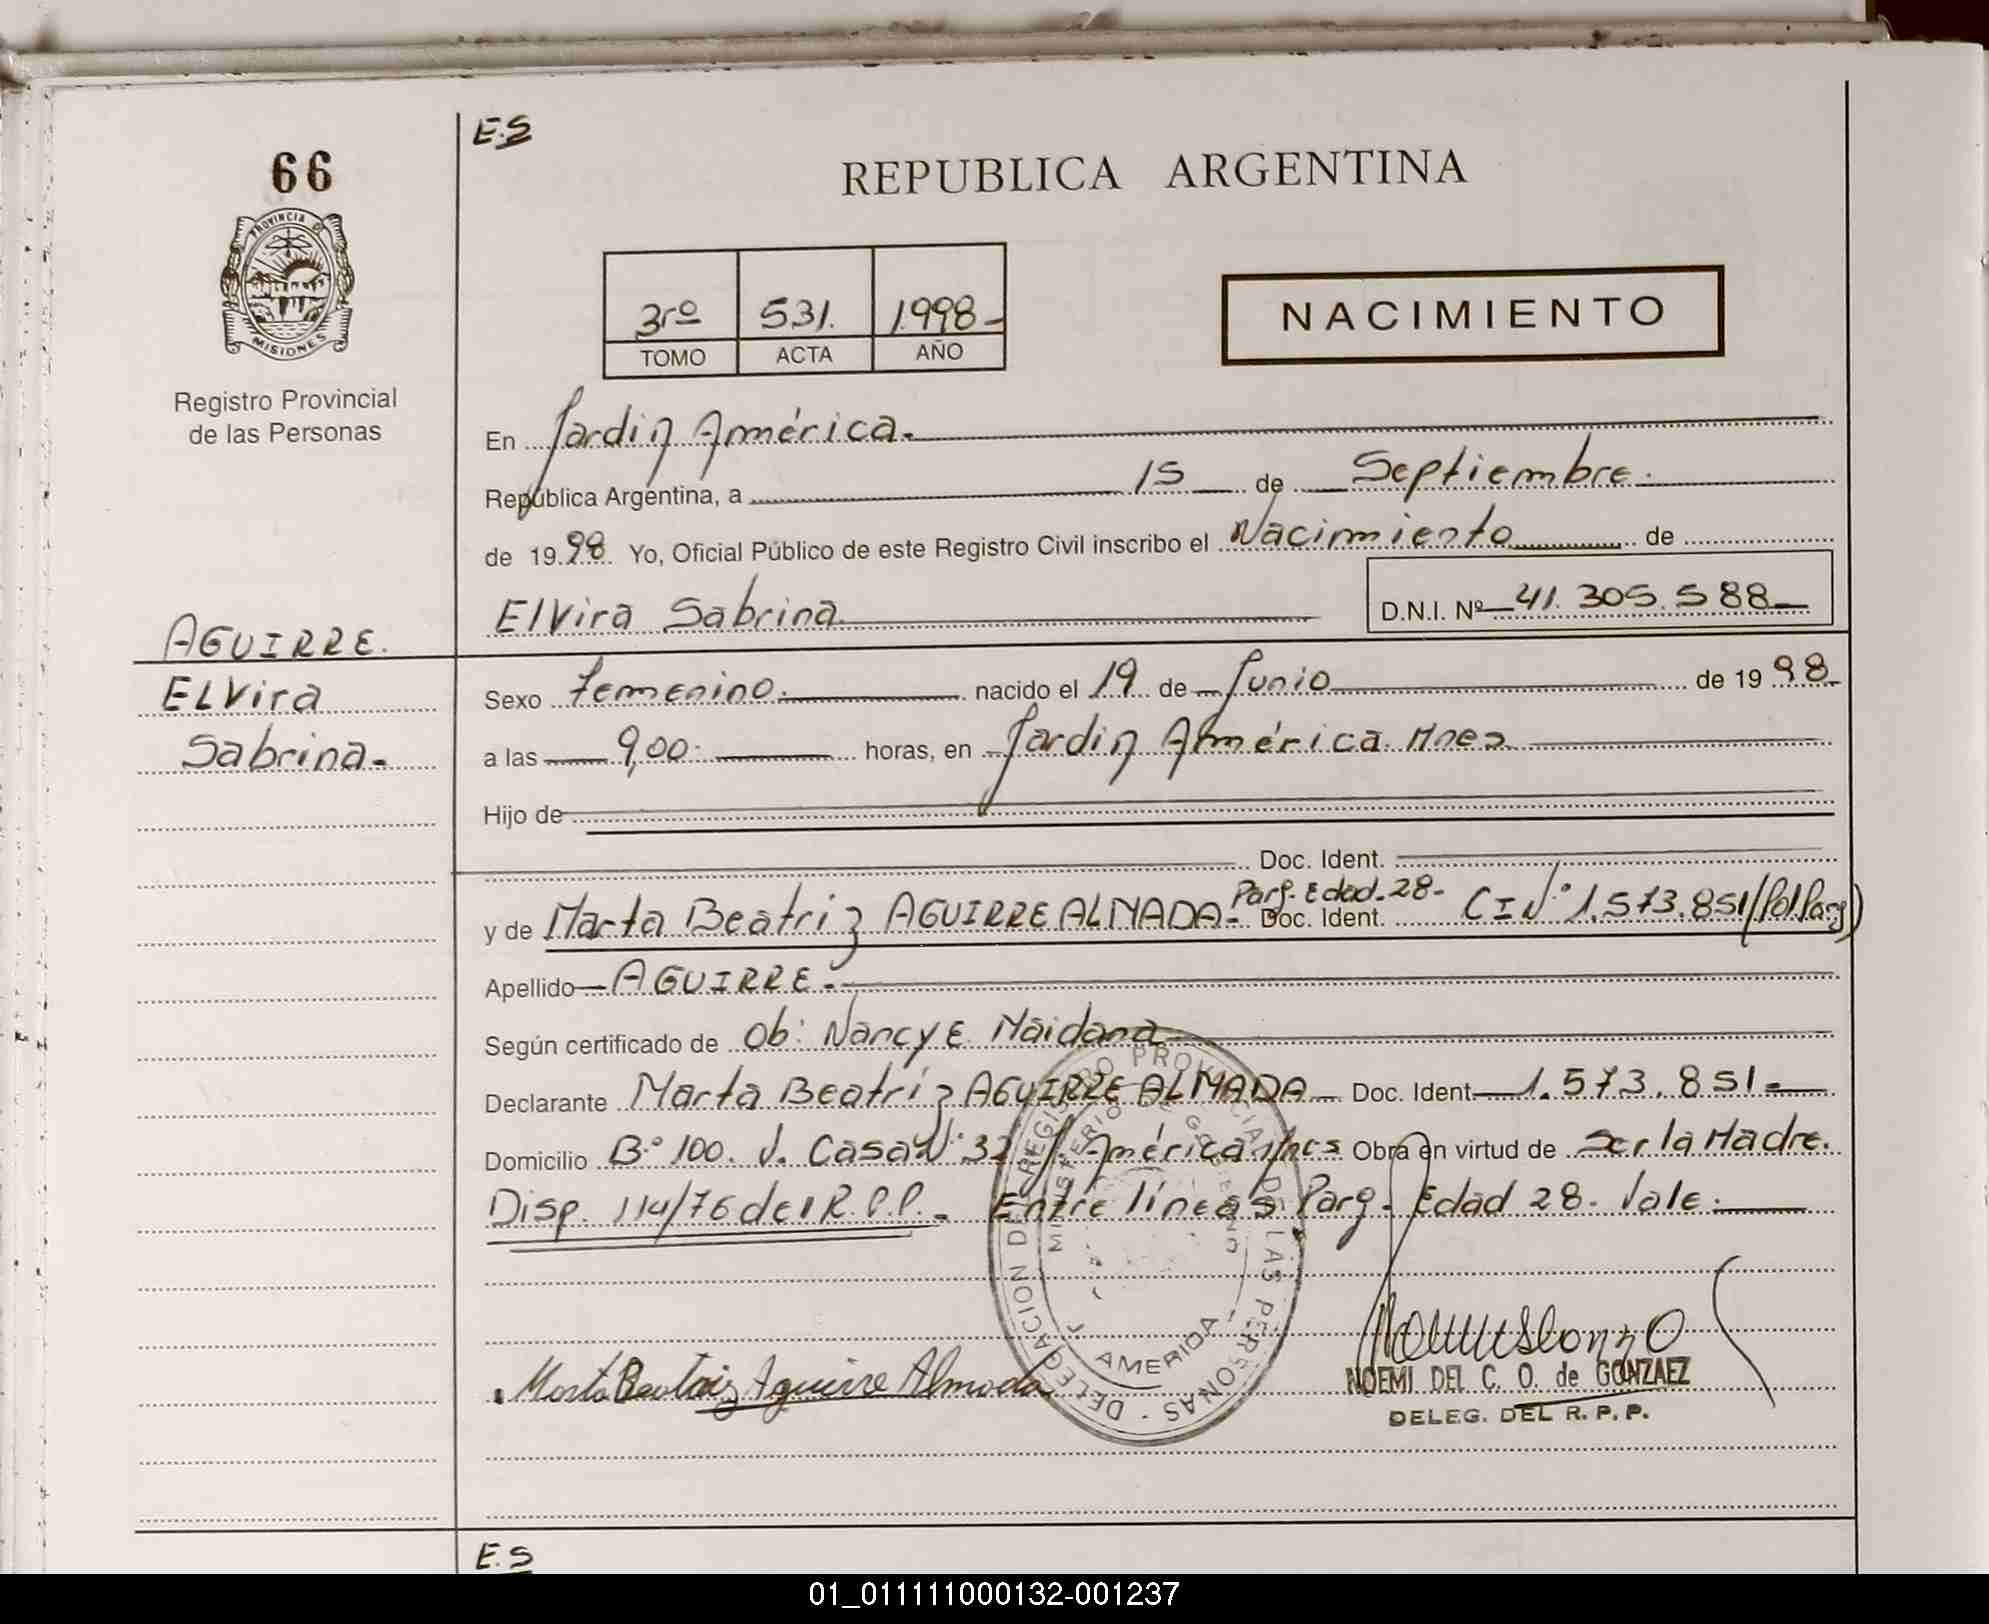 E.S
66
REPUBLICA ARGENTINA
PROVINCIA DE
MISIONES
Registro Provincial
de las Personas
3ro 531. 1998-
TOMO ACTA AÑO
NACIMIENTO
En Jardin América.
República Argentina, a 15 de Septiembre.
de 1998 Yo, Oficial Público de este Registro Civil inscribo el Nacimiento de
Elvira Sabrina D.N.I. Nº 41.305.588
AGUIRRE.
ELVira
Sabrina.
Sexo Femenino. nacido el 19 de Junio de 1998
a las 9,00. horas, en Jardin América Mnes
Hijo de
Doc. Ident.
Parg. Edad. 28-
y de Marta Beatriz AGUIRRE ALMADA- Doc. Ident. C I Nº 1.573.851(Pol Parg)
Apellido AGUIRRE.
Según certificado de Ob: Nancy E. Maidana
Declarante Marta Beatriz AGUIRRE ALMADA Doc. Ident 1.573.851
Domicilio Bº 100. V. Casa Nº 32 J. América Mnes Obra en virtud de ser la Madre.
Disp. 114/76 del R.P.P. Entre líneas Parg. Edad 28. Vale.
DELEGACION DEL REGISTRO PROVINCIAL DE LAS PERSONAS
MINISTERIO DE GOBIERNO
Marta Beatriz Aguirre Almada
NOEMI DEL C. O. de GONZAEZ
DELEG. DEL R. P. P.
E.S
01_011111000132-001237